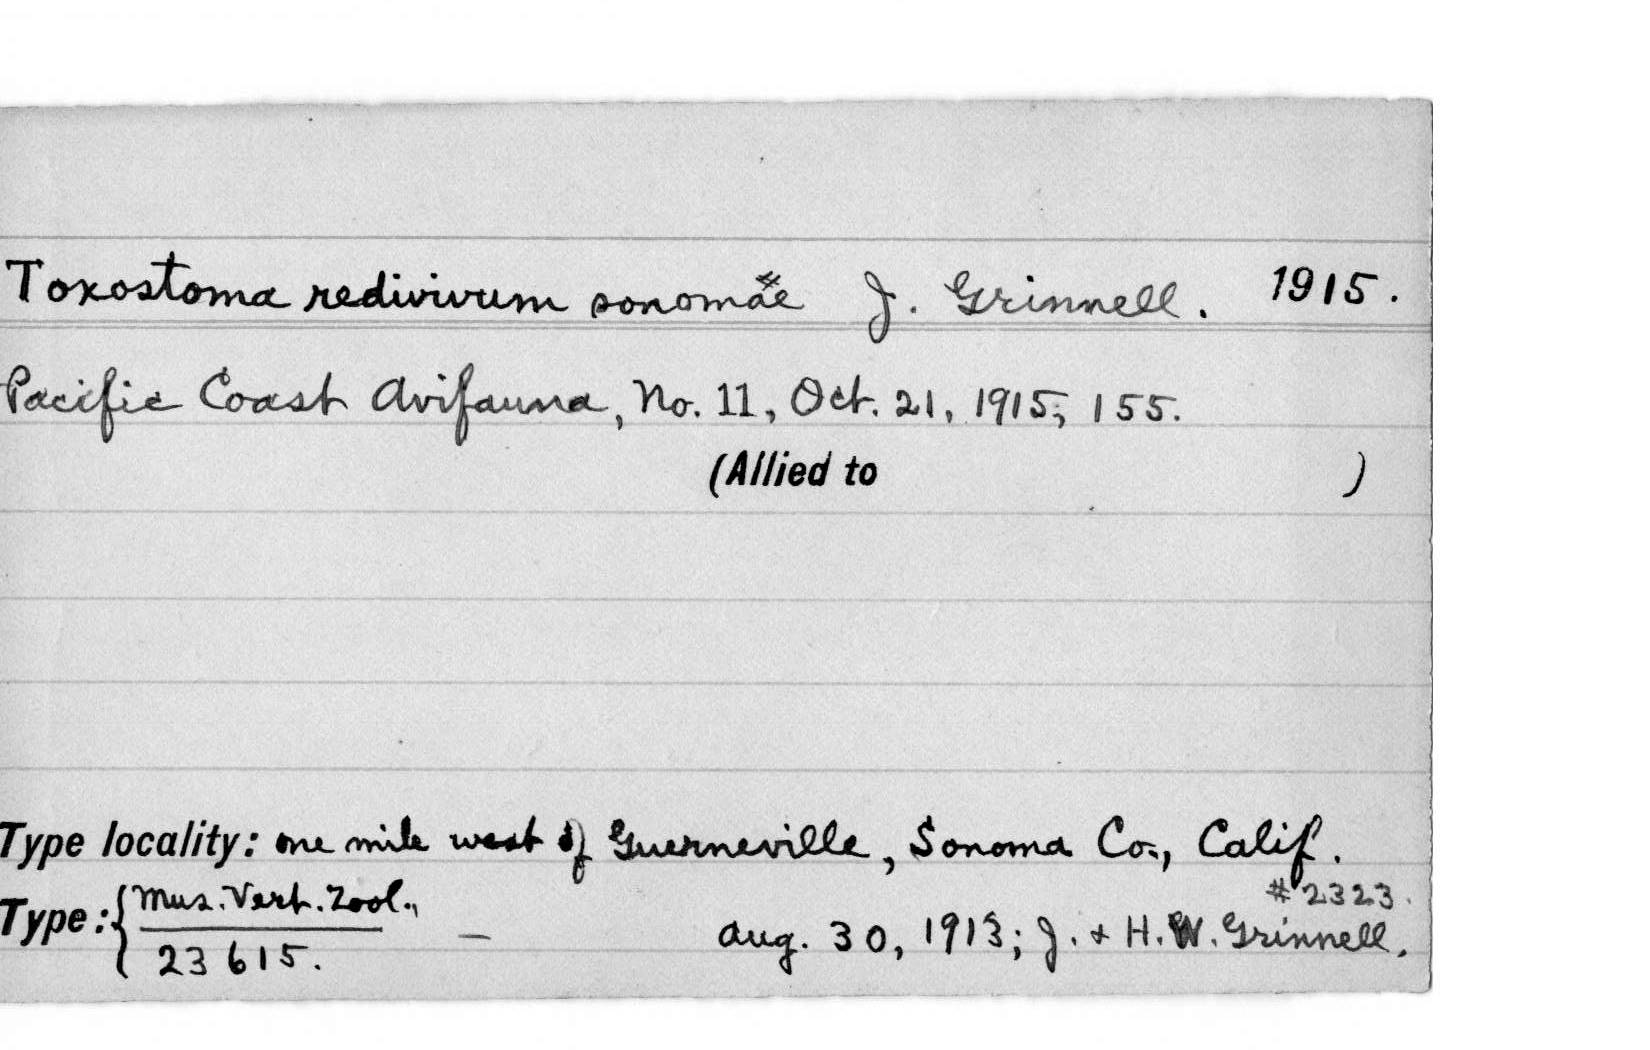 Toxostoma redivivum sonomae J. Grinnell. 1915.
Pacific Coast Avifauna, No. 11, Oct. 21, 1915, 155.
(Allied to )
Type locality: one mile west of Guerneville, Sonoma Co., Calif.
#2323.
Type: { Mus. Vert. Zool., — Aug. 30, 1913; J. & H. W. Grinnell.
23615.